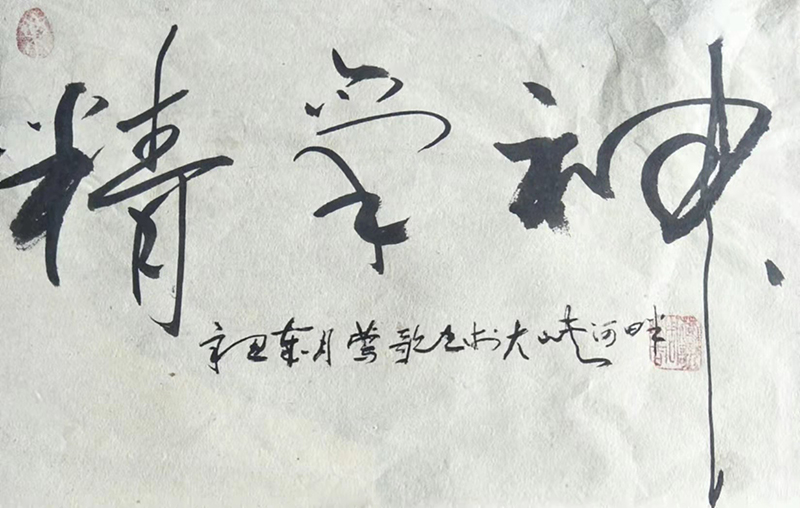 精氣神
辛丑東月莺歌书於大峡河畔